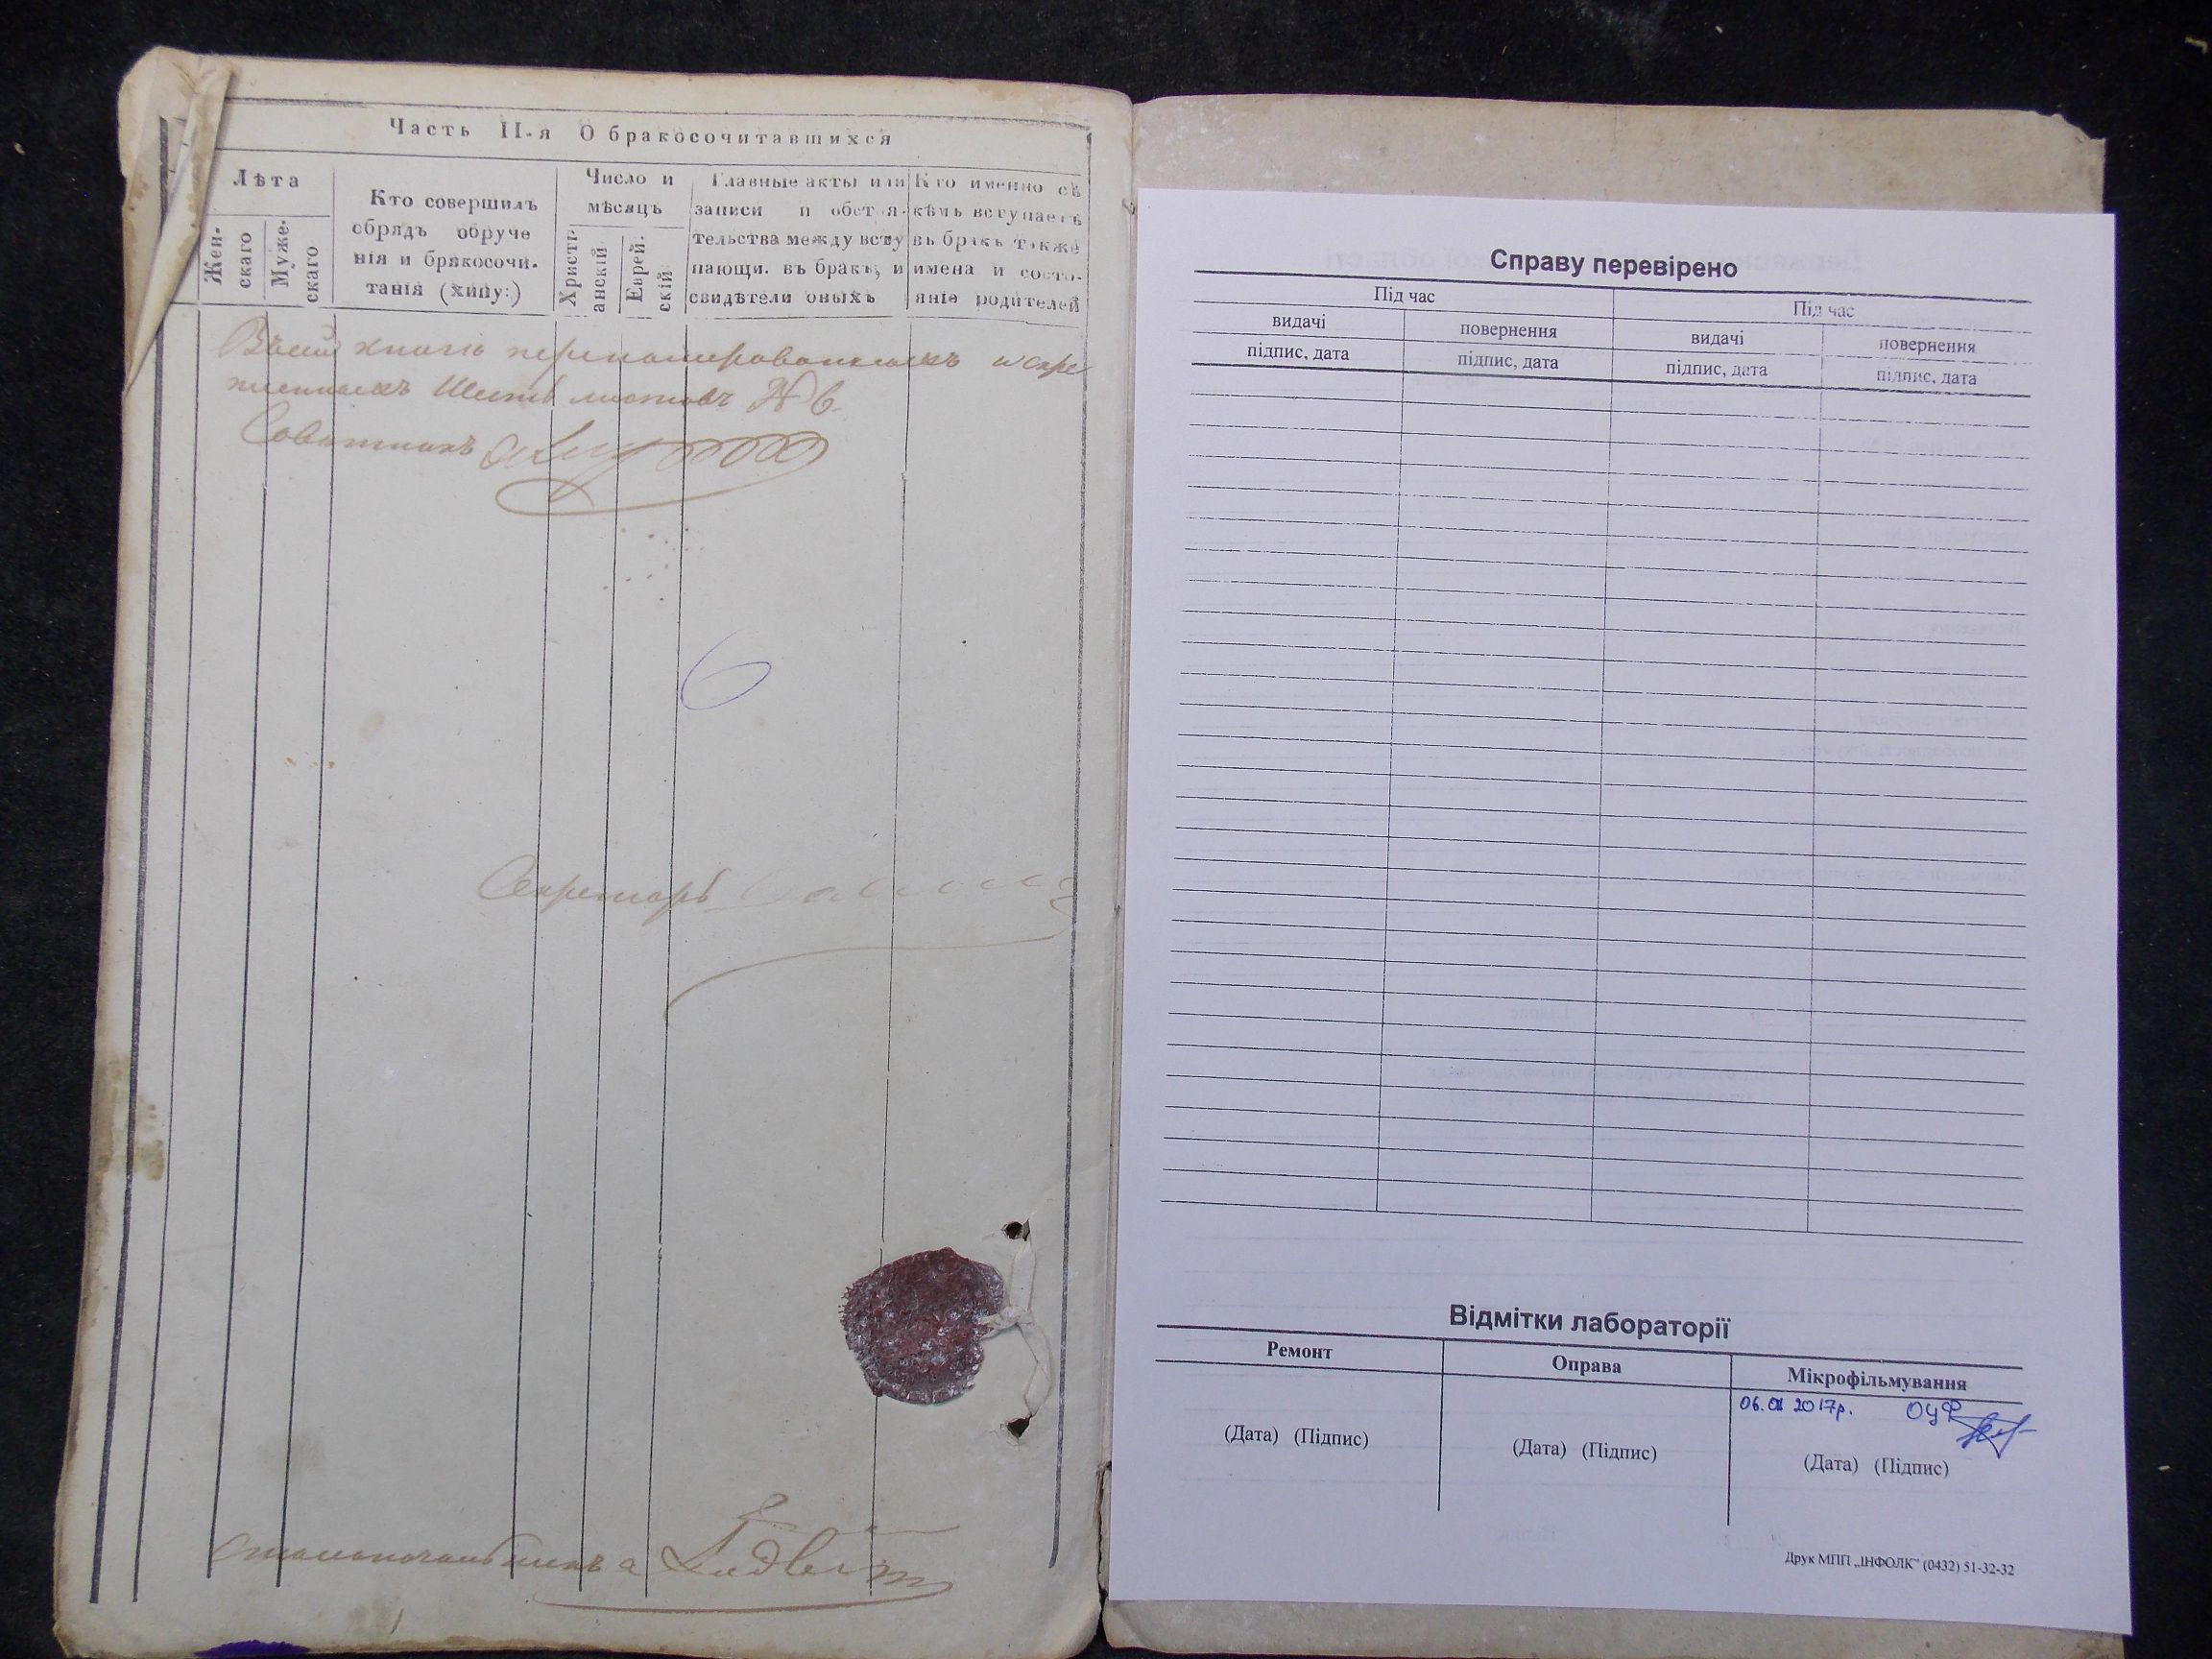 Часть II-я О бракосочитавшихся
Лѣта
Жен-
скаго
Муже-
скаго
Кто совершилъ
обрядъ обруче
нія и бракосочи-
танія (хипу:)
Число и
мѣсяцъ
Христі-
анскій
Еврей-
скій
Главные акты или
записи и обстоя-
тельства между всту
пающи. въ бракъ, и
свидѣтели оныхъ
Кто именно съ
кѣмъ вступаетъ
въ бракъ также
имена и состо-
яніе родителей
В сей книгѣ перенумерованныхъ и скрѣ
пленныхъ Шесть листовъ № 6.
Совѣтникъ
6
Секретарь
Столоначальникъ
Справу перевірено
Під час
Під час
видачі
повернення
видачі
повернення
підпис, дата
підпис, дата
підпис, дата
підпис, дата
Відмітки лабораторії
Ремонт
Оправа
Мікрофільмування
2017р. ОЦФ
(Дата) (Підпис)
(Дата) (Підпис)
(Дата) (Підпис)
Друк МПП „ІНФОЛК” (0432) 51-32-32